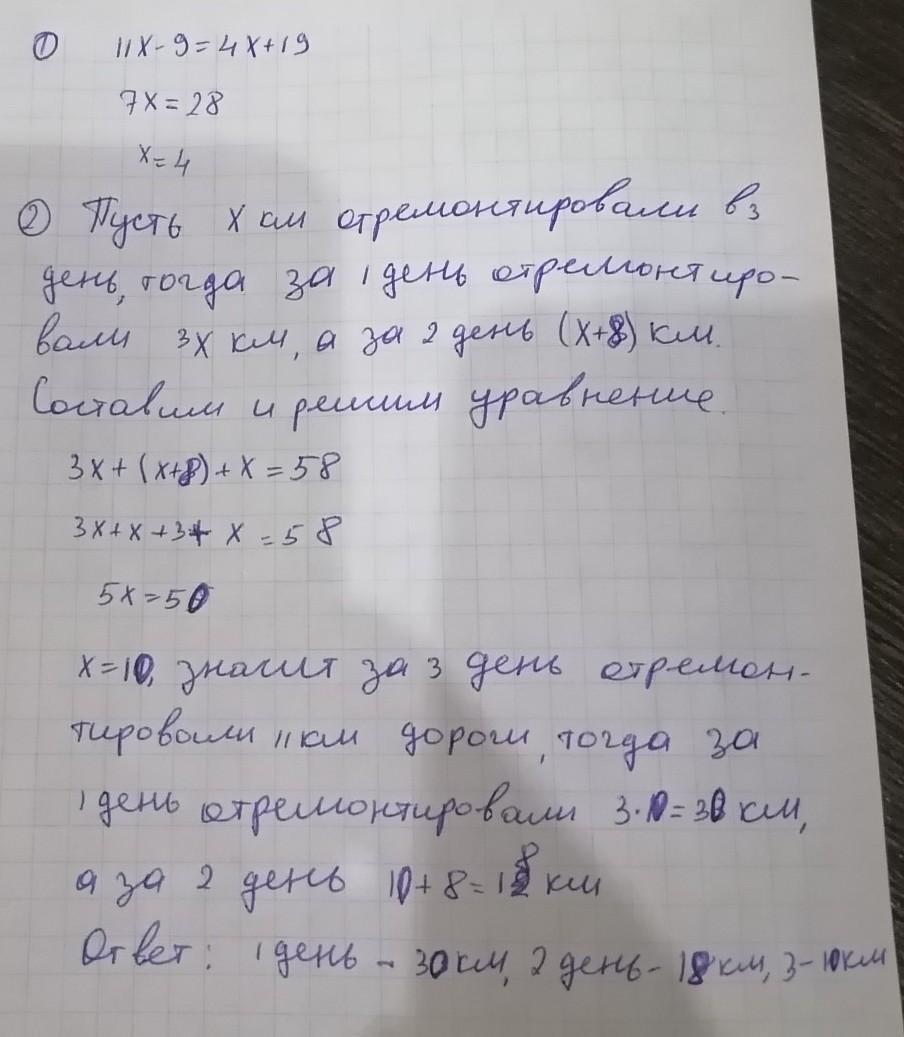 ① 11x-9=4x+19
7x=28
x=4
② Пусть x км отремонтировали в 3
день, тогда за 1 день отремонтиро-
вали 3x км, а за 2 день (x+8) км.
Составим и решим уравнение.
3x+(x+8)+x=58
3x+x+3+x=58
5x=50
x=10, значит за 3 день отремон-
тировали 11 км дороги, тогда за
1 день отремонтировали 3·10=30 км,
а за 2 день 10+8=18 км
Ответ: 1 день - 30 км, 2 день - 18 км, 3 - 10 км